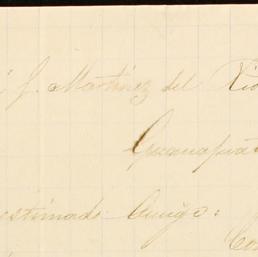 J. Martinez del Rio
Guanajuat
estimado Amigo: